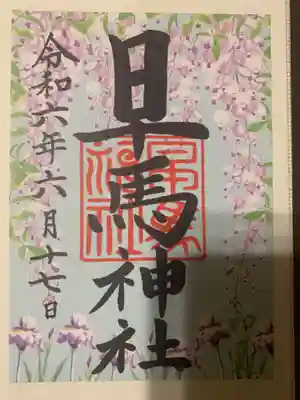 早馬神社
令和六年六月十七日